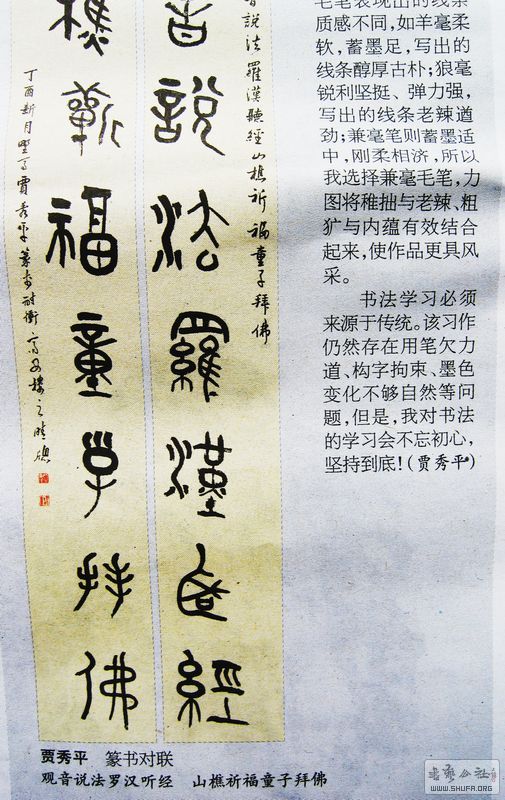 音說法羅漢聽經山樵祈福童子拜佛
音說法羅漢聽經
樵蘄福童子拜佛
丁酉新月
賈秀平篆書
毛笔表现出的线条
质感不同，如羊毫柔
软，蓄墨足，写出的
线条醇厚古朴；狼毫
锐利坚挺、弹力强，
写出的线条老辣遒
劲；兼毫笔则蓄墨适
中，刚柔相济，所以
我选择兼毫毛笔，力
图将稚拙与老辣、粗
犷与内蕴有效结合
起来，使作品更具风
采。
书法学习必须
来源于传统。该习作
仍然存在用笔欠力
道、构字拘束、墨色
变化不够自然等问
题，但是，我对书法
的学习会不忘初心，
坚持到底！（贾秀平）
贾秀平 篆书对联
观音说法罗汉听经 山樵祈福童子拜佛
书艺公社
WWW.SHUFA.ORG